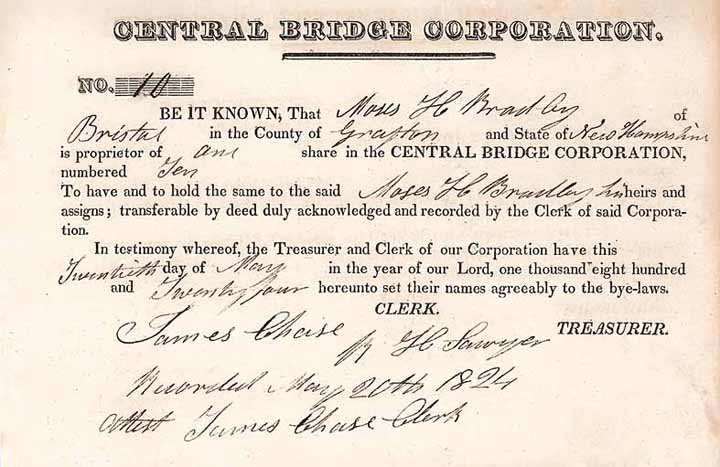 CENTRAL BRIDGE CORPORATION.
NO. 10
BE IT KNOWN, That Moses H Bradley of
Bristol in the County of Grafton and State of New Hampshire
is proprietor of one share in the CENTRAL BRIDGE CORPORATION,
numbered Ten
To have and to hold the same to the said Moses H Bradley his heirs and
assigns; transferable by deed duly acknowledged and recorded by the Clerk of said Corpora-
tion.
In testimony whereof, the Treasurer and Clerk of our Corporation have this
Twentieth day of May in the year of our Lord, one thousand eight hundred
and Twenty four hereunto set their names agreeably to the bye-laws.
CLERK.
James Chase TREASURER.
H Sawyer
Recorded May 20th 1824
Attest James Chase Clerk